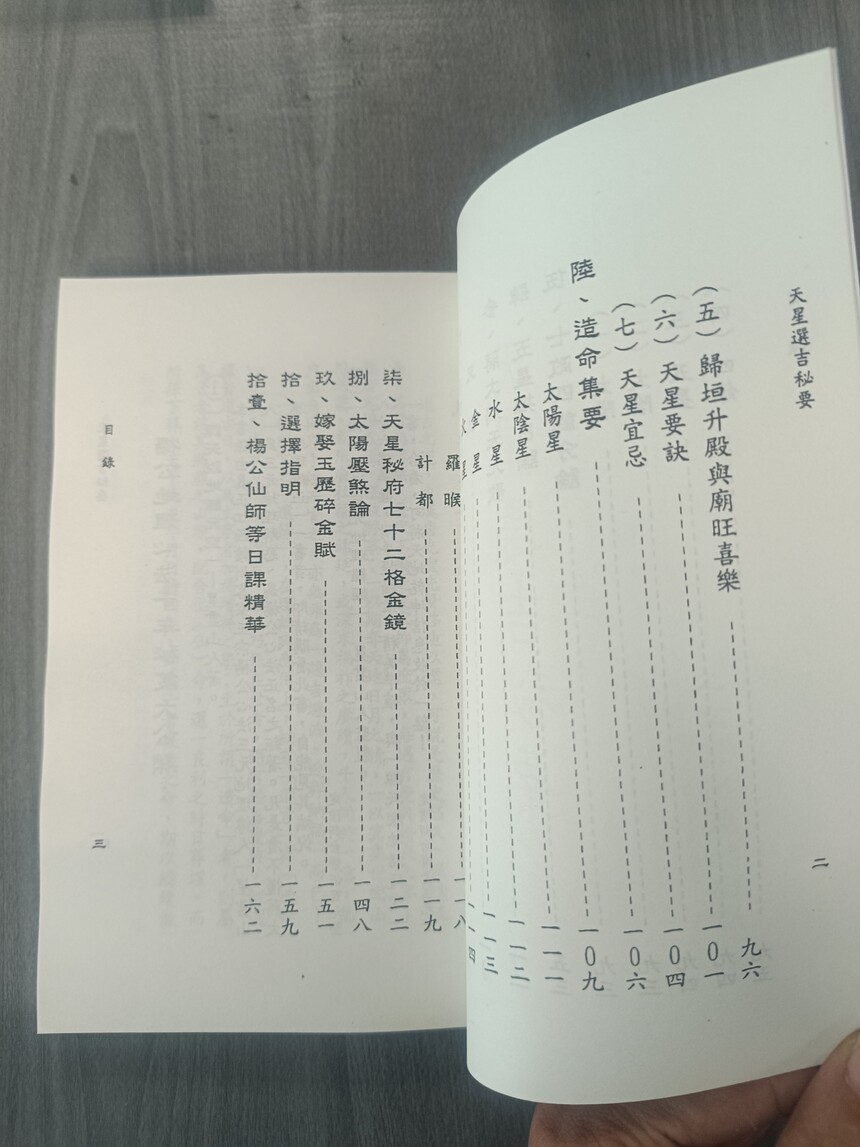 天星選吉秘要
二
（五）歸垣升殿與廟旺喜樂------九六
（六）天星要訣------一0一
（七）天星宜忌------一0四
陸、造命集要------一0六
太陽星------一0九
太陰星------一一一
水星------一一二
金星------一一三
星------一一四
羅㬋------一一八
計都------一一九
柒、天星秘府七十二格金鏡------一二二
捌、太陽壓煞論------一四八
玖、嫁娶玉歷碎金賦------一五一
拾、選擇指明------一五九
拾壹、楊公仙師等日課精華------一六二
目錄
三